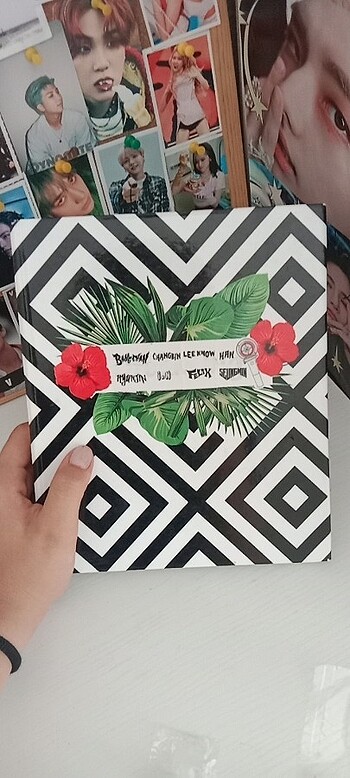 BANGCHAN CHANGBIN LEE KNOW HAN
HYUNJIN I.N FELIX SEUNGMIN